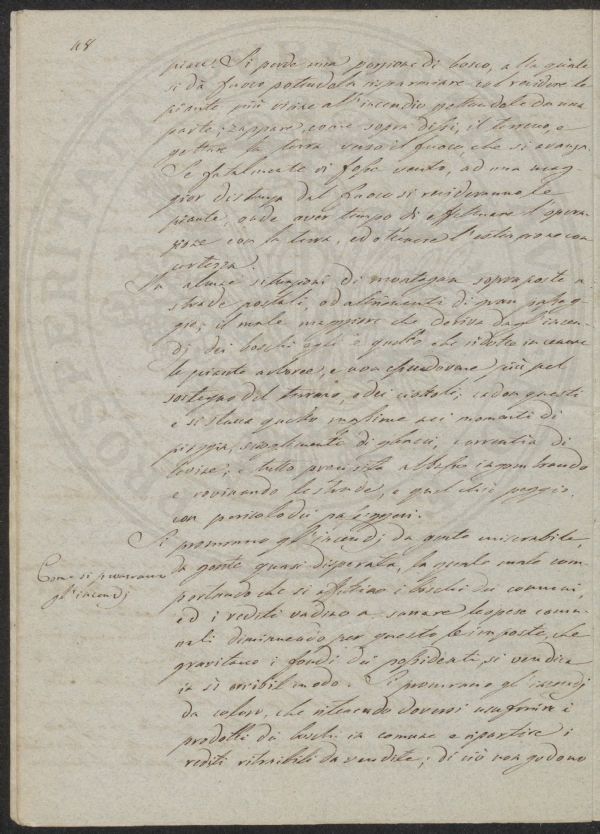 48
piace. Si perde una porzione di bosco, alla quale
si dà fuoco potendola risparmiare col recidere le
piante più vicine all'incendio gettandole da una
parte; zappare, come sopra dissi, il terreno, e
gettare la terra verso il fuoco, che si avanza.
Se fatalmente vi fosse vento, ad una mag-
gior distanza dal fuoco si recideranno le
piante, onde aver tempo di effettuare l'opera-
zione con la terra, ed ottenere l'estinzione con
certezza.
In alcune situazioni di montagna sopraposte a
strade postali, od altrimenti di gran passag-
gio; il male maggiore che deriva dagl'incen-
di dei boschi egli è quello che ridotte in cenere
le piante arboree, e non essendovene più pel
sostegno del terreno, e dei ciotoli; cadon questi
e si stacca quello massime nei momenti di
pioggia, scioglimento di ghiacci, correntia di
levine, e tutto precipita al basso ingombrando
e rovinando le strade, e quel ch'è peggio,
con pericolo dei passeggeri.
Come si promovano
gl'incendj
Si promovano gl'incendj da gente miserabile,
da gente quasi disperata, la quale male com-
portando che si affittino i boschi dei comuni,
ed i rediti vadino a sanare le spese comu-
nali diminuendo per questo le imposte, che
gravitano i fondi dei possidenti, si vendica
in sì orribil modo. Si promovano gl'incendj
da coloro, che ritenendo doversi usufruire i
prodotti dei boschi in comune e ripartire i
rediti ritraibili da vendite; di ciò non godono